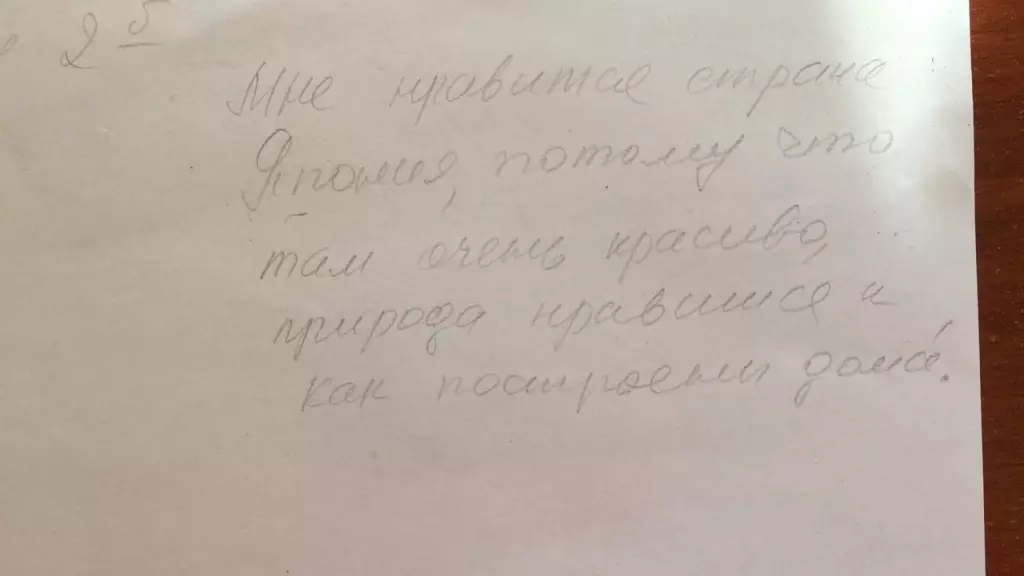 2 б
Мне нравится страна
Япония, потому что
там очень красиво,
природа нравится и
как построены дома.